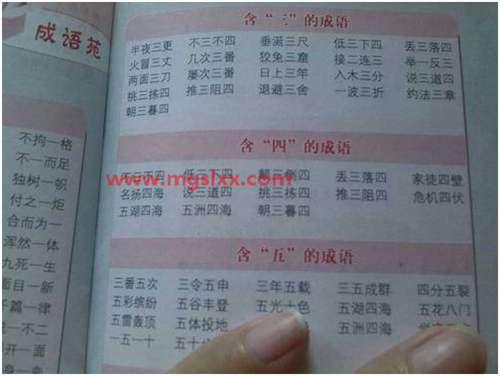 成语苑
不拘一格
不一而足
独树一帜
付之一炬
合而为一
浑然一体
九死一生
面目一新
千篇一律
不二
开一面
含“三”的成语
半夜三更 不三不四 垂涎三尺 低三下四 丢三落四
火冒三丈 几次三番 狡兔三窟 接二连三 举一反三
两面三刀 屡次三番 日上三竿 入木三分 说三道四
挑三拣四 推三阻四 退避三舍 一波三折 约法三章
朝三暮四
含“四”的成语
不三不四 低三下四 丢三落四 家徒四壁
名扬四海 说三道四 挑三拣四 推三阻四 危机四伏
五湖四海 五洲四海 朝三暮四
www.mgslxx.com
含“五”的成语
三番五次 三令五申 三年五载 三五成群 四分五裂
五彩缤纷 五谷丰登 五光十色 五湖四海 五花八门
五雷轰顶 五体投地 五洲四海
一五一十 五十